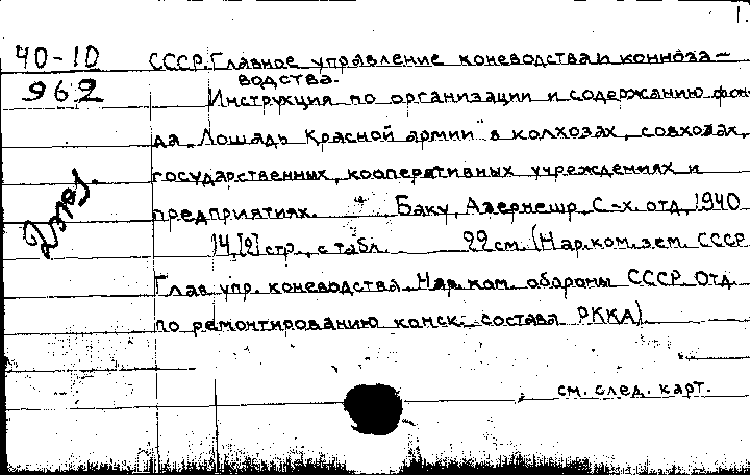 1.
40-10
962
СССР. Главное управление коневодства и коннозаводства.
Инструкция по организации и содержанию фон-
да „Лошадь Красной армии" в колхозах, совхозах,
государственных, кооперативных учреждениях и
предприятиях. Баку, Азернешр, С-х. отд, 1940
14, [2] стр., с табл. 22 см. (Нар. ком. зем. СССР
Глав упр. коневодства. Нар. ком. обороны СССР. Отд.
по ремонтированию конск. состава РККА)
см. след. карт.